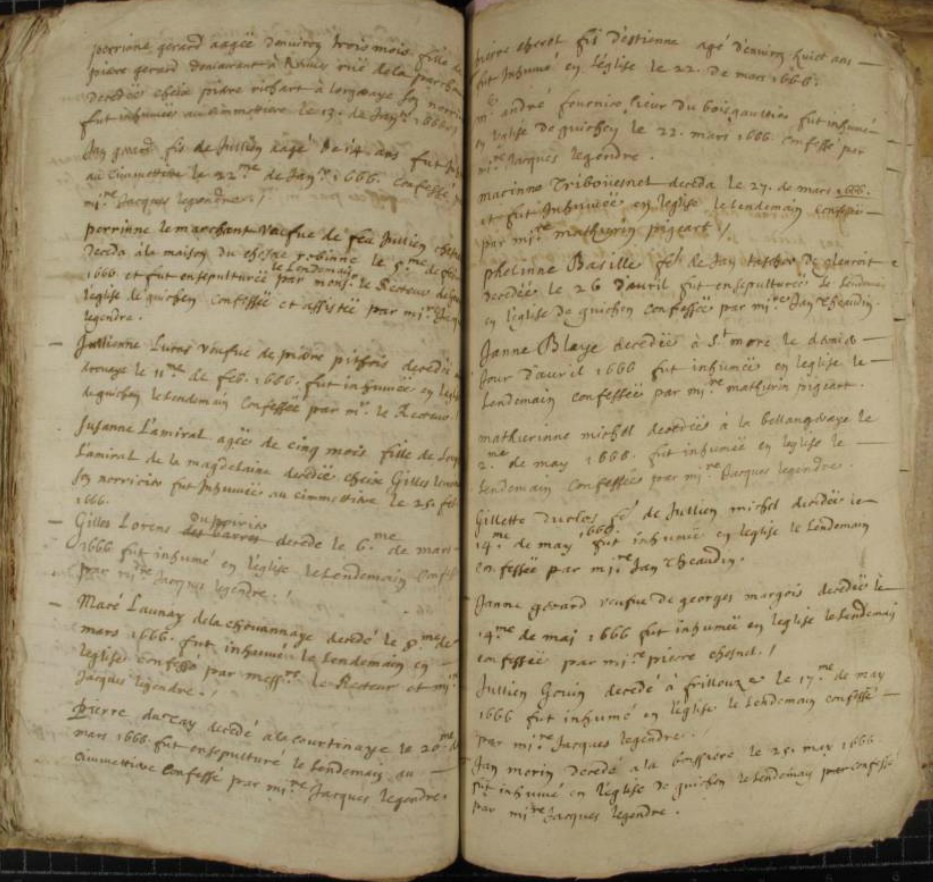 perrinne gerard aagëe denviron trois mois fille de
pierre gerard demeurant à Rennes ruë de la parche
decedëe cheix pierre richart à son norri
fut inhumëe au cimmettiere le 13. de Janr. 1666
Jan gerard fis de Jullien aagé de 14. ans fut
au cimmettiere le 22.me de Janr. 1666. confessé
mi.re Jacques legendre. /
perrinne le marchant veufue de feu Jullien
deceda à la maison du chesne robinne le 8.me de
le lendemain
1666 et fut ensepulturëe par mons.r le Recteur
leglise de guichen confessëe et assistëe par mi.re
legendre.
Jullienne Luras veufue de pierre pitfrois decedëe
le 11.me de feb. 1666. fut inhumëe en
de guichen le lendemain confessëe par mr. le Recteur
Susanne Lamiral agëe de cinq mois fille de
Lamiral de la magdelaine decedëe cheix Gilles
son norricier fut Inhumëe au cimmettiere le 25. feb
1666.
du poirie
Gilles Lorens des barres decede le 6.me de mars
1666 fut inhumé en leglise le lendemain
par mi.re Jacques legendre. /
Macé Launay de la chouannaye decedé le 8.me de
mars 1666. fut inhumé le lendemain en
leglise confessé par mess.rs le Recteur et mi.re
Jacques legendre. /
Pierre durcay decedé à la courtinaye le 20.me de
mars 1666. fut ensepulturé le lendemain au
cimmettiere confessé par mi.re Jacques legendre.
pierre cherel fis d'estienne agé d'enviro huict ans
fut Inhumé en leglise le 22. de mars 1666.
m.e andré sieur du boisgaultier fut inhumé
en leglise de guichen le 22. mars 1666. confessé par
mi.re Jacques legendre.
marinne Tribouesnel deceda le 27. de mars 1666.
et fut Inhumëe en leglise le lendemain confessëe
par mi.re mathurin pigeart /
phelinne Basille fe de Jan de
decedëe le 26 d'auril fut ensepulturëe le lendemain
en leglise de guichen confessëe par mi.re Jan Theaudin.
Janne Blaye decedëe à St more le
Jour d'auril 1666 fut inhumëe en leglise le
lendemain confessëe par mi.re mathurin pigeart.
mathurinne michel decedëe à la bellangeraye le
2.me de may 1666. fut inhumëe en leglise le
lendemain confessëe par mi.re Jacques legendre.
Gillette duclos fe de Jullien michel decedëe le
1666
14.me de may fut inhumëe en leglise le lendemain
confessëe par mi.re Jan Theaudin.
Janne gerard veufue de georges margois decedëe le
14.me de mai 1666 fut inhumëe en leglise le lendemain
confessëe par mi.re pierre chesnel. /
Jullien Gouin decedé à frillouze le 17.me de may
1666 fut inhumé en leglise le lendemain confessé
par mi.re Jacques legendre. /
Jan morin decedé à la boessiere le 25. may 1666
fut inhumé en leglise de guichen le lendemain confessé
par mi.re Jacques legendre.